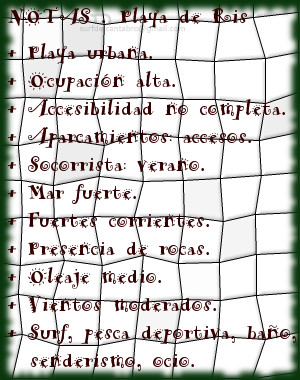 NOTAS . Playa de
+ Playa urbana.
+ Ocupación alta.
+ Accesibilidad no completa.
+ Aparcamientos: accesos.
+ Socorrista: verano.
+ Mar fuerte.
+ Fuertes corrientes.
+ Presencia de rocas.
+ Oleaje medio.
+ Vientos moderados.
+ Surf, pesca deportiva, baño,
senderismo, ocio.